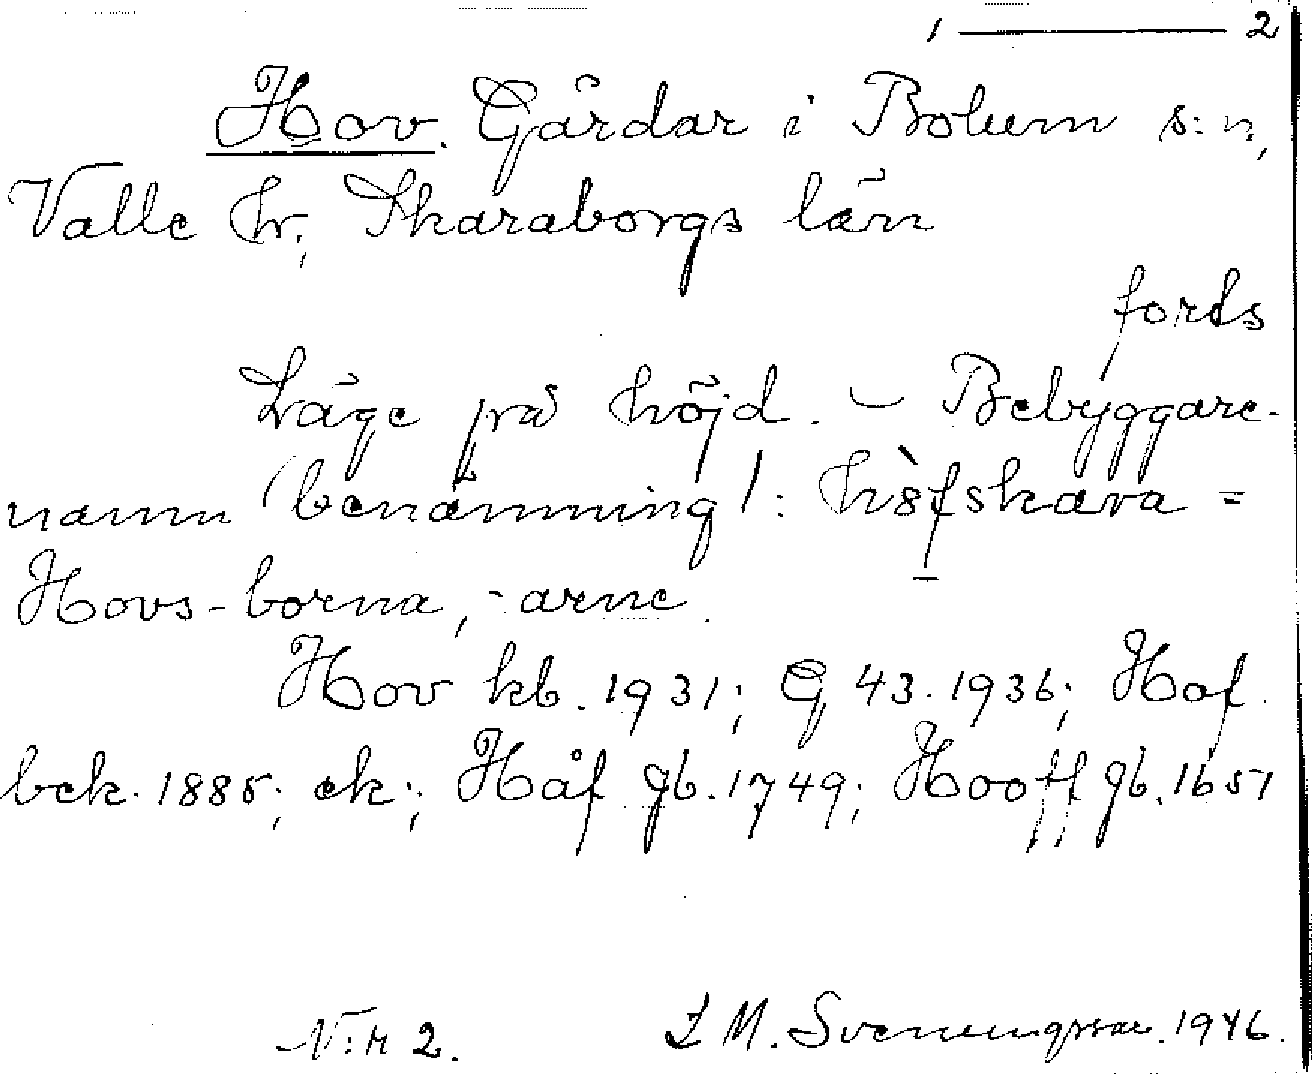 1 — 2
Hov. Gårdar i Bolum s:n,
Valle hr, Skaraborgs län
fords
Läge på höjd. – Bebyggare-
namn (benämning): hòfskara =
Hovs-borna, -arne.
Hov kb. 1931; G 43. 1936; Hof
bck. 1885; ek; Håf gb. 1749; Hooff gb. 1651
N:r 2. I M. Svenungsson. 1946.